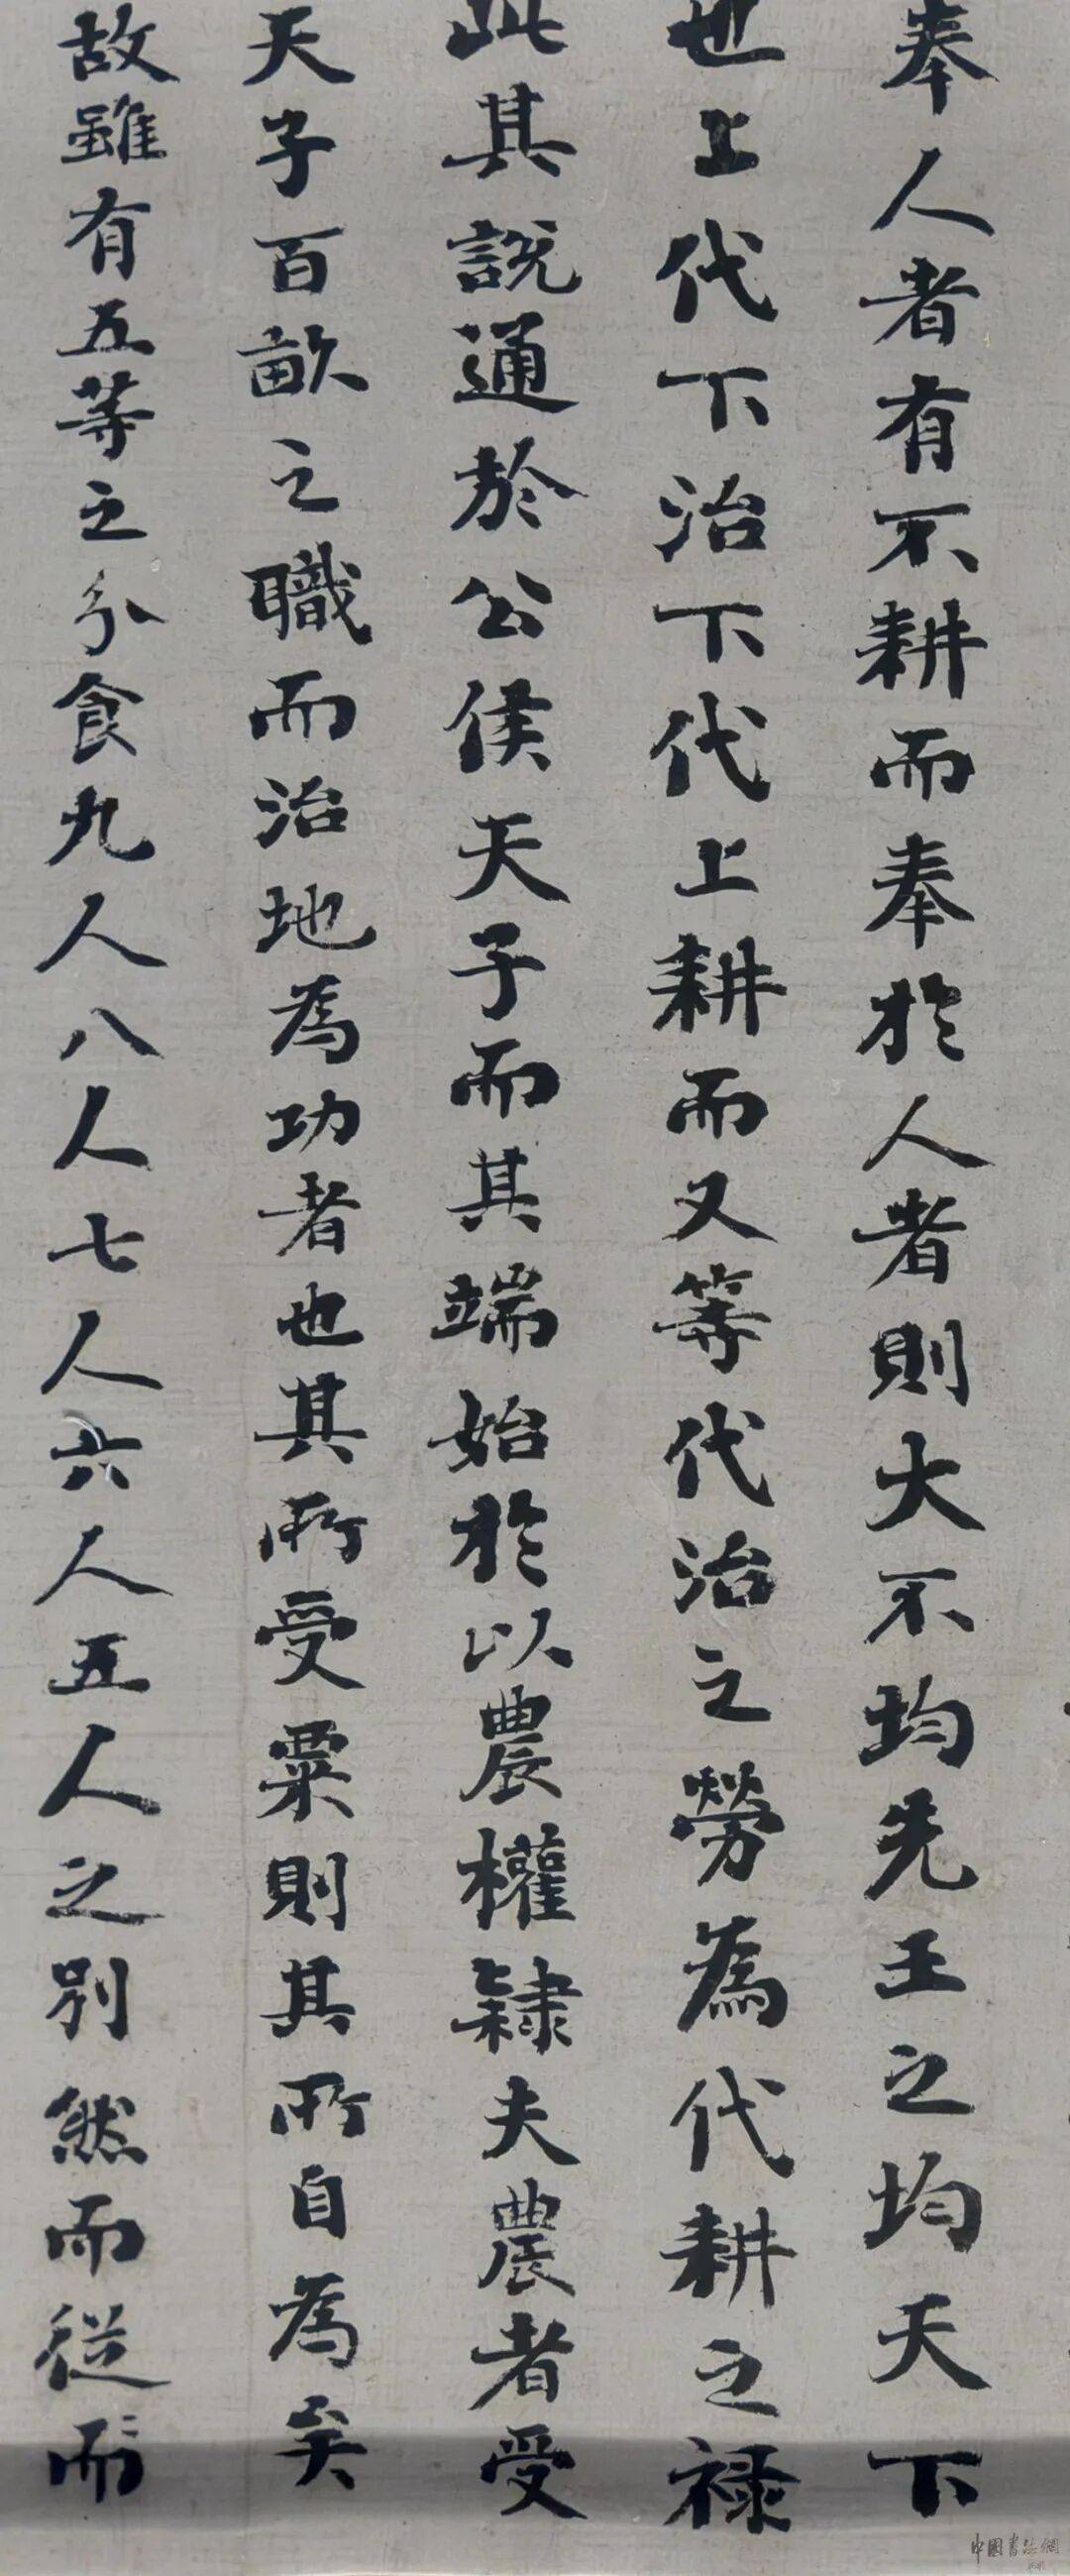 奉人者有不耕而奉於人者則大不均先王之均天下
也上代下治下代上耕而又等代治之勞為代耕之祿
此其說通於公侯天子而其端始於以農權隸夫農者受
天子百畝之職而治地為功者也其所受粟則其所自為矣
故雖有五等之分食九人八人七人六人五人之別然而從而
中國書法網